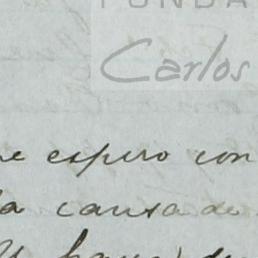 FUNDA
Carlos
e espero con
a causa de